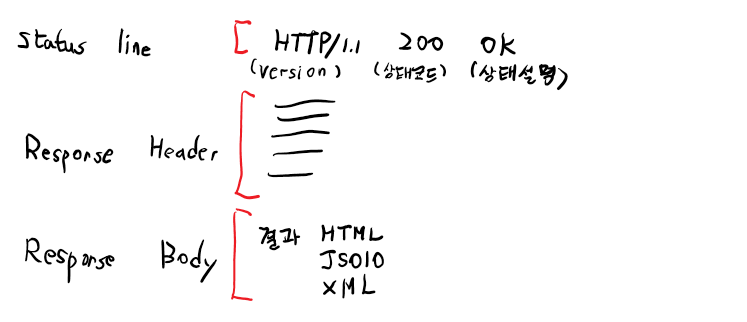 status line HTTP/1.1 200 OK
(version) (상태코드) (상태설명)
Response Header
Response Body 결과 HTML
JSON
XML